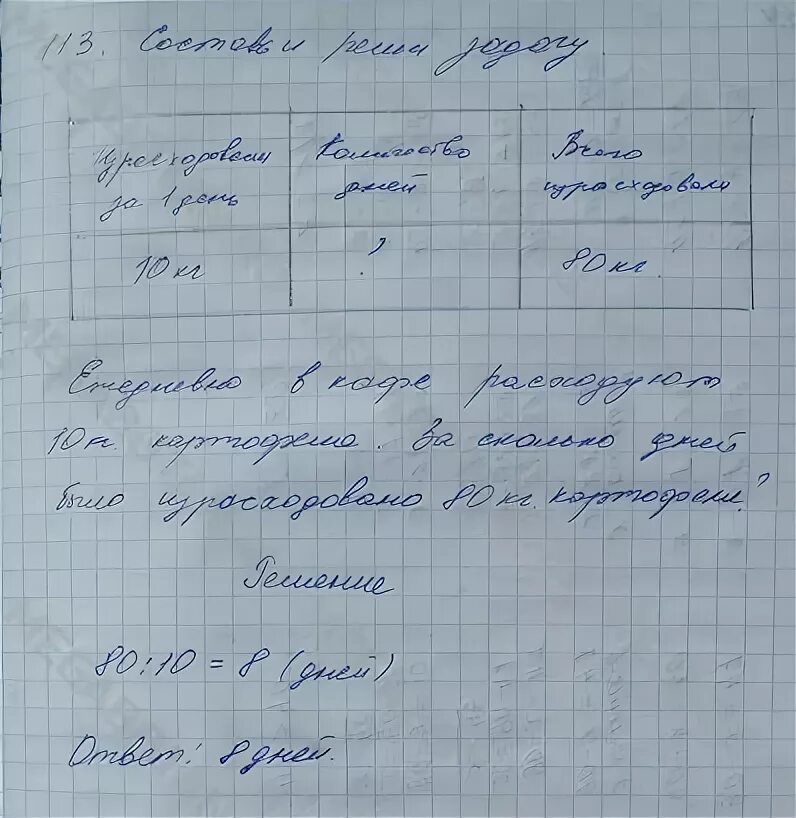 113. Составь и реши задачу.
Израсходовали за 1 день
Количество дней
Всего израсходовали
10 кг
?
80 кг.
Ежедневно в кафе расходуют
10 кг. картофеля. За сколько дней
было израсходовано 80 кг. картофеля?
Решение
80:10 = 8 (дней)
Ответ: 8 дней.